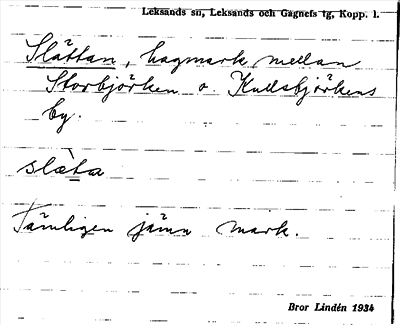 Leksands sn, Leksands och Gagnefs tg, Kopp. l.
Slättan, hagmark mellan
Storbjörken o. Kullsbjörkens
by.
slæ̀ta
Tämligen jämn mark.
Bror Lindén 1934